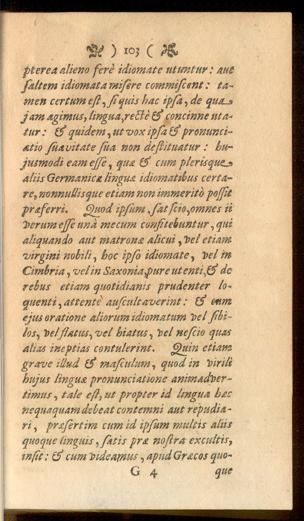 ) 103 (
pterea alieno ferè idiomate utuntur: aut
saltem idiomata misere commiscent: ta-
men certum est, si quis hac ipsâ, de quâ
jam agimus, lingua, rectè & concinne uta-
tur: & quidem, ut vox ipsa & pronunci-
atio suavitate sua non destituatur: hu-
jusmodi eam esse, quæ & cum plerisque
aliis Germanicæ linguæ idiomatibus certa-
re, nonnullisque etiam non immeritò possit
præferri. Quod ipsum, sat scio, omnes ii
verum esse unà mecum confitebuntur, qui
aliquando aut matronæ alicui, vel etiam
virgini nobili, hoc ipso idiomate, vel in
Cimbria, vel in Saxonia, pure utenti, & de
rebus etiam quotidianis prudenter lo-
quenti, attentè auscultaverint: & cum
ejus oratione aliorum idiomatum vel sibi-
los, vel flatus, vel hiatus, vel nescio quas
alias ineptias contulerint. Quin etiam
grave illud & masculum, quod in virili
hujus linguæ pronunciatione animadver-
timus, tale est, ut propter id lingua hæc
nequaquam debeat contemni aut repudia-
ri, præsertim cum id ipsum multis aliis
quoque linguis, satis præ nostra excultis,
insit: & cum videamus, apud Græcos quo-
G 4 que